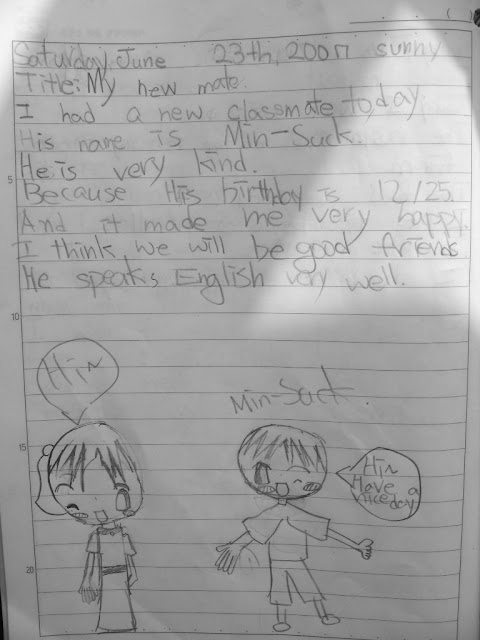 Saturday, June 23th, 2007 sunny
Title: My new mate.
I had a new classmate today.
His name is Min-Suck.
He is very kind.
5
Because His birthby is 12/25.
And it made me very happy.
I think we will be good friends
He speaks English very well.
10
Hi~
Min-Suck.
15
Hi~
Have a
nice day
20